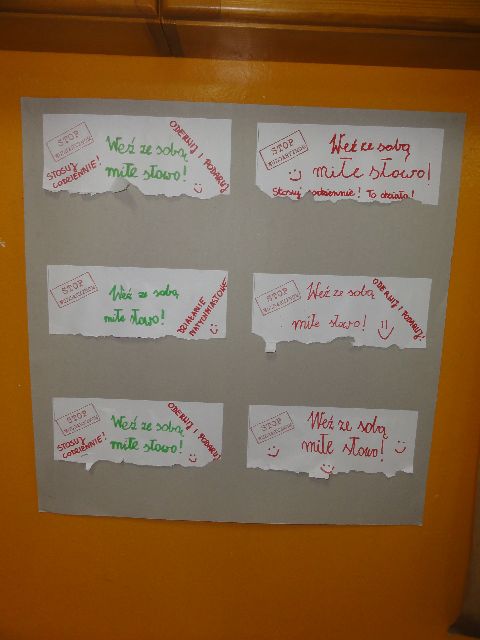 STOP
WULGARYZMOM
Weź ze sobą
miłe słowo!
STOSUJ
CODZIENNIE!
ODERWIJ I PODARUJ
STOP
WULGARYZMOM
Weź ze sobą
miłe słowo!
Stosuj codziennie! To działa!
STOP
WULGARYZMOM
Weź ze sobą
miłe słowo!
DZIAŁANIE
NATYCHMIASTOWE
STOP
WULGARYZMOM
Weź ze sobą
miłe słowo!
ODERWIJ I PODARUJ!
STOP
WULGARYZMOM
Weź ze sobą
miłe słowo!
STOSUJ
CODZIENNIE!
ODERWIJ I PODARUJ
STOP
WULGARYZMOM
Weź ze sobą
miłe słowo!